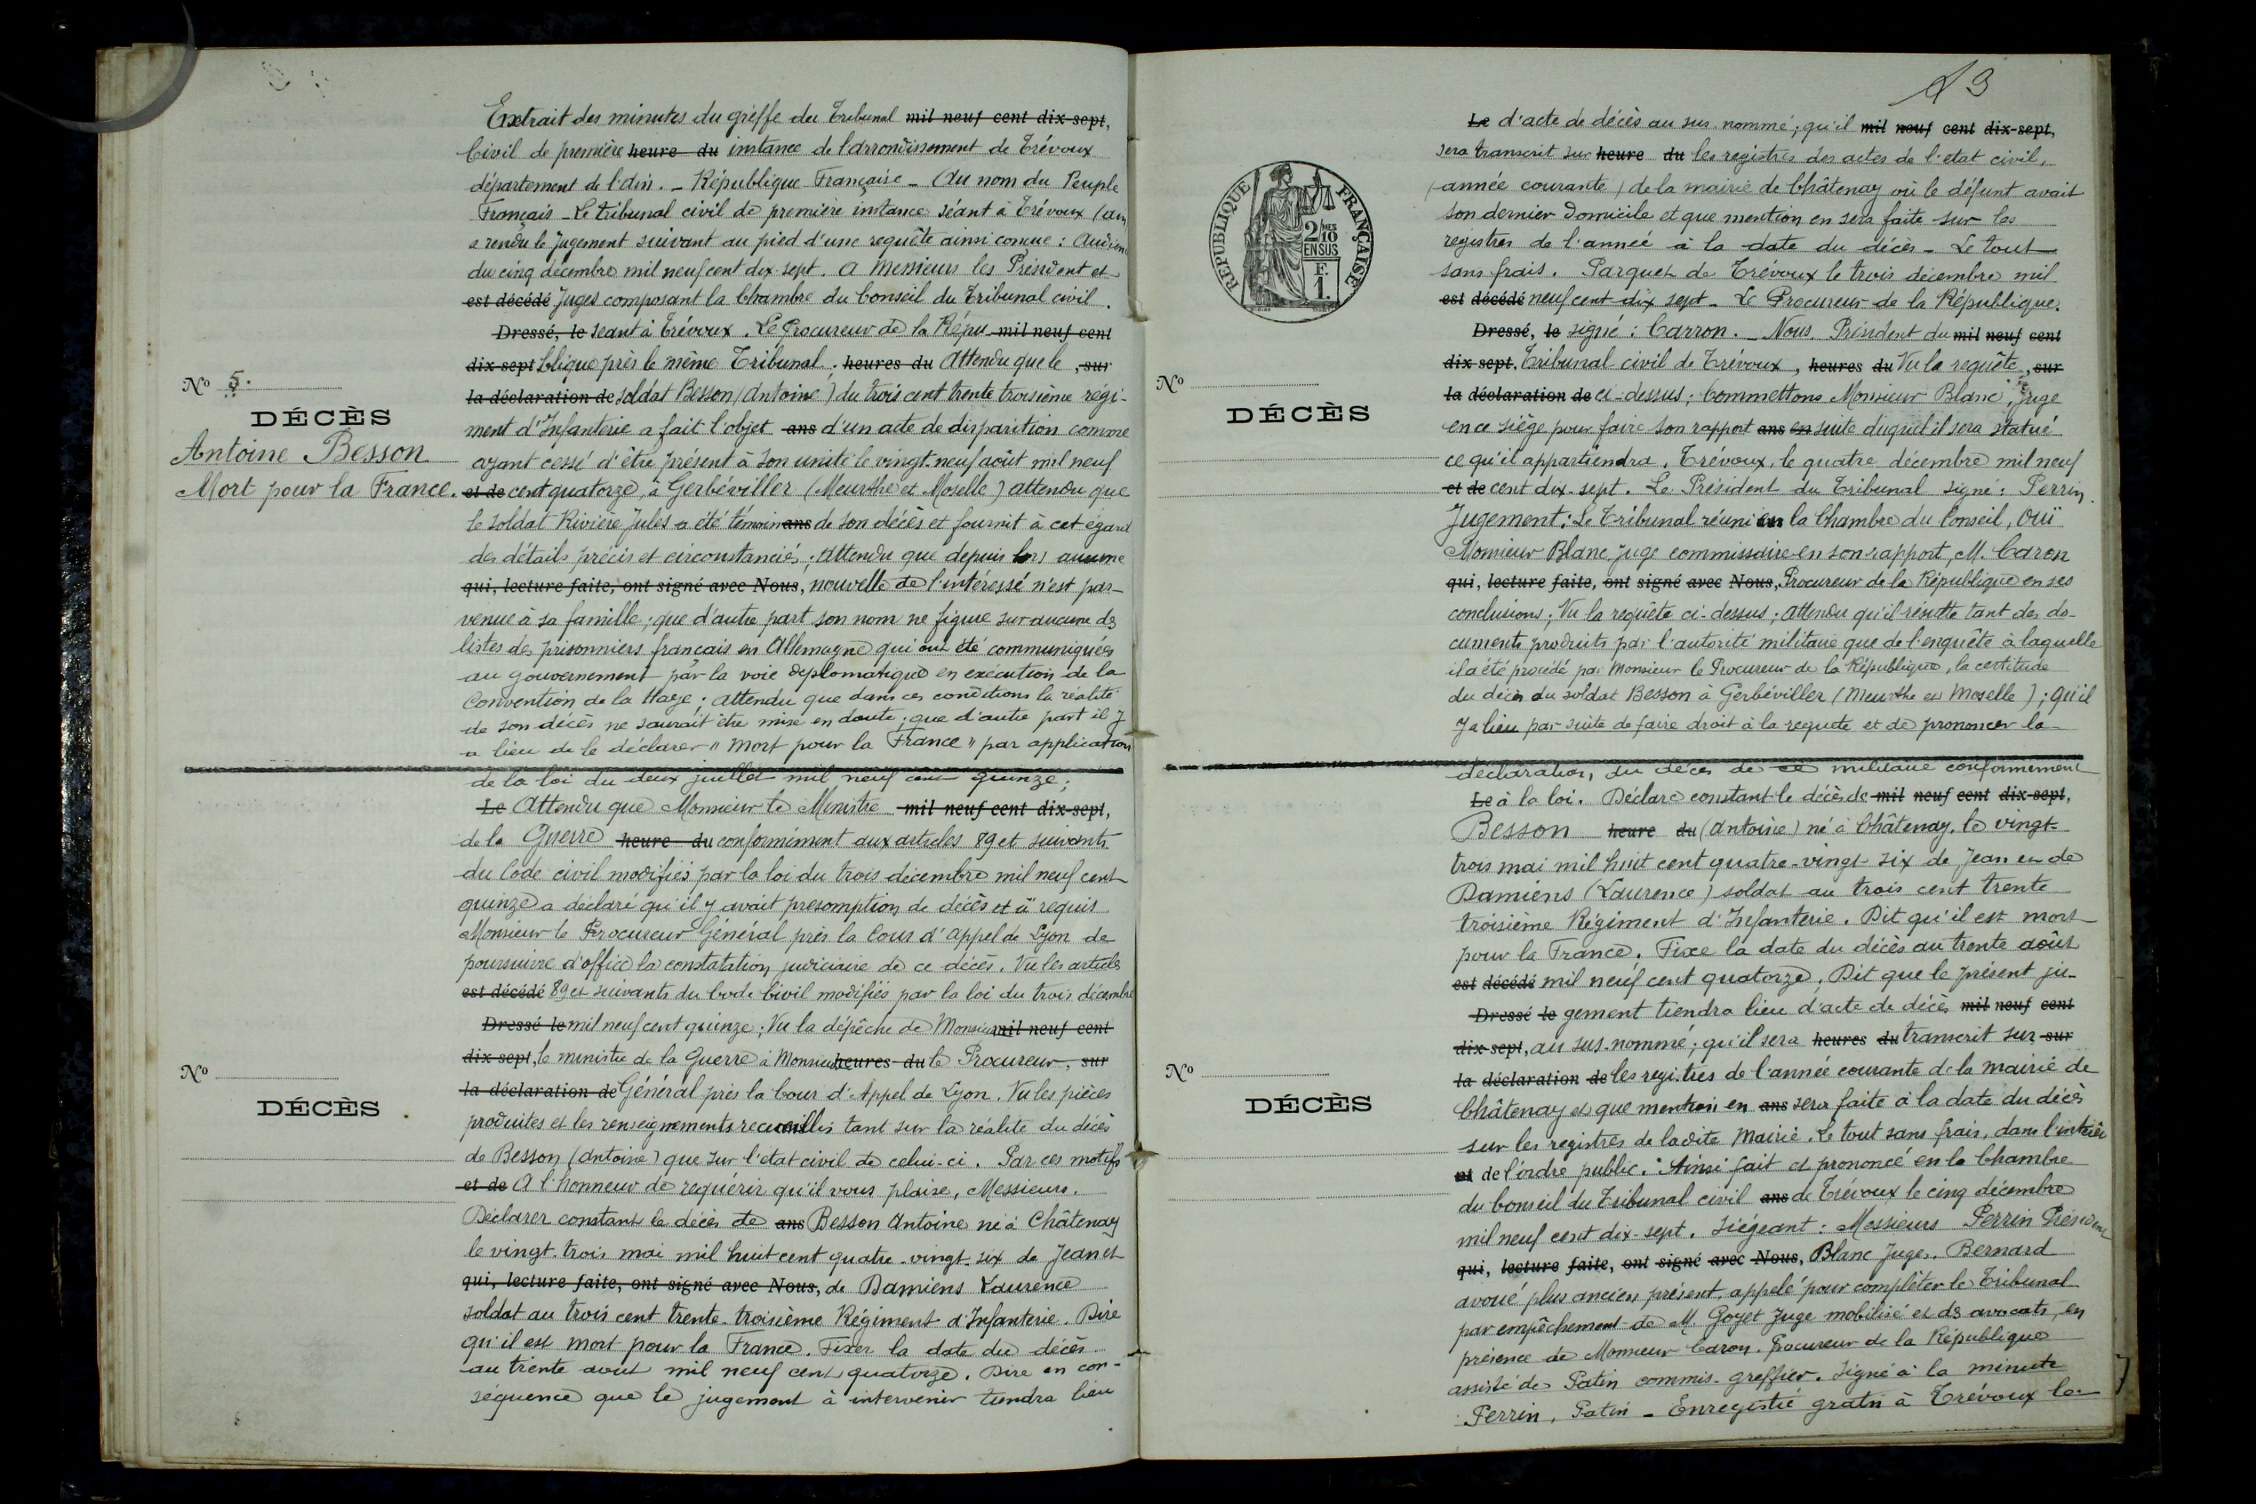 Extrait des minutes du greffe du Tribunal mil neuf cent dix-sept,
Civil de première heure du instance de l'arrondissement de Trévoux
département de l'Ain. - République Française - Au nom du Peuple
Français - Le tribunal civil de première instance séant à Trévoux (Ain
a rendu le jugement suivant au pied d'une requête ainsi concue :
du cinq décembre mil neuf cent dix-sept. A Messieurs les Président et
est décédé Juges composant la Chambre du Conseil du Tribunal civil.
Dressé, le séant à Trévoux. Le Procureur de la Répu mil neuf cent
dix-sept blique près le même Tribunal ; heures du Attendu que le , sur
la déclaration de soldat Besson (Antoine) du trois cent trente troisième régi-
ment d'Infanterie a fait l'objet ans d'un acte de disparition comme
ayant cessé d'être présent à son unité le vingt-neuf août mil neuf
et de cent quatorze, à Gerbéviller (Meurthe et Moselle) attendu que
le soldat Rivière Jules a été témoin ans de son décès et fournit à cet égard
des détails précis et circonstanciés ; Attendu que depuis lors aucune
qui, lecture faite, ont signé avec Nous, nouvelle de l'intéressé n'est par-
venue à sa famille ; que d'autre part son nom ne figure sur aucune des
listes des prisonniers français en Allemagne qui ont été communiquées
au gouvernement par la voie diplomatique en exécution de la
Convention de la Haye ; attendu que dans ces conditions la réalité
de son décès ne saurait être mise en doute ; que d'autre part il y
a lieu de le déclarer " Mort pour la France " par application
de la loi du deux juillet mil neuf cent quinze ;
Le Attendu que Monsieur le Ministre mil neuf cent dix-sept,
de la Guerre heure du conformément aux articles 89 et suivants
du Code civil modifiés par la loi du trois décembre mil neuf cent
quinze a déclaré qu'il y avait presomption de décès et a requis
Monsieur le Procureur Général près la Cour d'appel de Lyon de
poursuivre d'office la constatation judiciaire de ce décès. Vu les articles
est décédé 89 et suivants du Code Civil modifiés par la loi du trois décembre
Dressé le mil neuf cent quinze ; Vu la dépêche de Monsieur mil neuf cent
dix-sept, le ministre de la Guerre à Monsieur heures du le Procureur, sur
la déclaration de Général près la Cour d'Appel de Lyon. Vu les pièces
produites et les renseignements recueillis tant sur la réalité du décès
de Besson (Antoine) que sur l'état civil de celui-ci. Par ces motifs
et de A l'honneur de requérir qu'il vous plaise, Messieurs.
Déclarer constant le décès de ans Besson Antoine né à Châtenay
le vingt-trois mai mil huit cent quatre-vingt-six de Jean et
qui, lecture faite, ont signé avec Nous, de Damiens Laurence
soldat au trois cent trente-troisième Régiment d'Infanterie. Dire
qu'il est mort pour la France. Fixer la date du décès
au trente août mil neuf cent quatorze. Dire en con-
séquence que le jugement à intervenir tiendra lieu
Nº 5.
DÉCÈS
Antoine Besson
Mort pour la France.
Nº
DÉCÈS
Le d'acte de décès au sus-nommé ; qu'il mil neuf cent dix-sept,
sera transcrit sur heure du les registres des actes de l'état civil,
(année courante) de la mairie de Châtenay où le défunt avait
son dernier domicile et que mention en sera faite sur les
registres de l'année à la date du décès - Le tout
sans frais. Parquet de Trévoux le trois décembre mil
est décédé neuf cent dix sept - Le Procureur de la République.
Dressé, le signé : Carron. - Nous Président du mil neuf cent
dix-sept. Tribunal civil de Trévoux, heures du Vu la requête, sur
la déclaration de ci-dessus ; Commettons Monsieur Blanc, Juge
en ce siège pour faire son rapport ans en suite duquel il sera statué
ce qu'il appartiendra. Trévoux, le quatre décembre mil neuf
et de cent dix-sept. Le Président du Tribunal signé : Perrin.
Jugement : Le Tribunal réuni en la Chambre du Conseil, Ouï
Monsieur Blanc Juge commissaire en son rapport, M. Caron
qui, lecture faite, ont signé avec Nous, Procureur de la République en ses
conclusions ; Vu la requête ci-dessus ; Attendu qu'il résulte tant des do-
cuments produits par l'autorité militaire que de l'enquête à laquelle
il a été procédé par Monsieur le Procureur de la République, la certitude
du décès du soldat Besson à Gerbéviller (Meurthe et Moselle) ; qu'il
y a lieu par suite de faire droit à la requete et de prononcer la
déclaration du décès de ce militaire conformément
Le à la loi. Déclare constant le décès de mil neuf cent dix-sept,
Besson heure du (Antoine) né à Châtenay, le vingt-
trois mai mil huit cent quatre-vingt-six de Jean et de
Damiens (Laurence) soldat au trois cent trente
troisième Régiment d'Infanterie. Dit qu'il est mort
pour la France. Fixe la date du décès au trente août
est décédé mil neuf cent quatorze. Dit que le présent ju-
Dressé le gement tiendra lieu d'acte de décès mil neuf cent
dix-sept, au sus-nommé ; qu'il sera heures du transcrit sur sur
la déclaration de les registres de l'année courante de la mairie de
Châtenay et que mention en ans sera faite à la date du décès
sur les registres de ladite Mairie. Le tout sans frais, dans l'intérêt
et de l'ordre public. Ainsi fait et prononcé en la Chambre
du Conseil du Tribunal civil ans de Trévoux le cinq décembre
mil neuf cent dix-sept. Siégeant : Messieurs Perrin Président
qui, lecture faite, ont signé avec Nous, Blanc Juge. Bernard
avoué plus ancien présent, appelé pour compléter le Tribunal
par empêchement de M. Goyet Juge mobilisé et des avocats, en
présence de Monsieur Caron. Procureur de la République
assisté de Patin commis-greffier. Signé à la minute
Perrin, Patin - Enregistré gratis à Trévoux le
RÉPUBLIQUE FRANÇAISE
2/10 MES
EN SUS
F.
1.
Nº
DÉCÈS
Nº
DÉCÈS